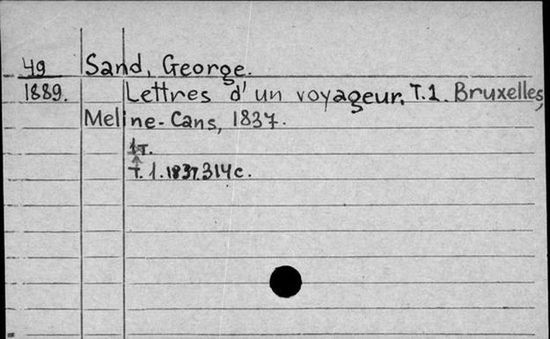 49 Sand, George.
1889. Lettres d'un voyageur. T.1. Bruxelles,
Meline-Cans, 1837.
1т.
Т. 1. 1837. 314с.